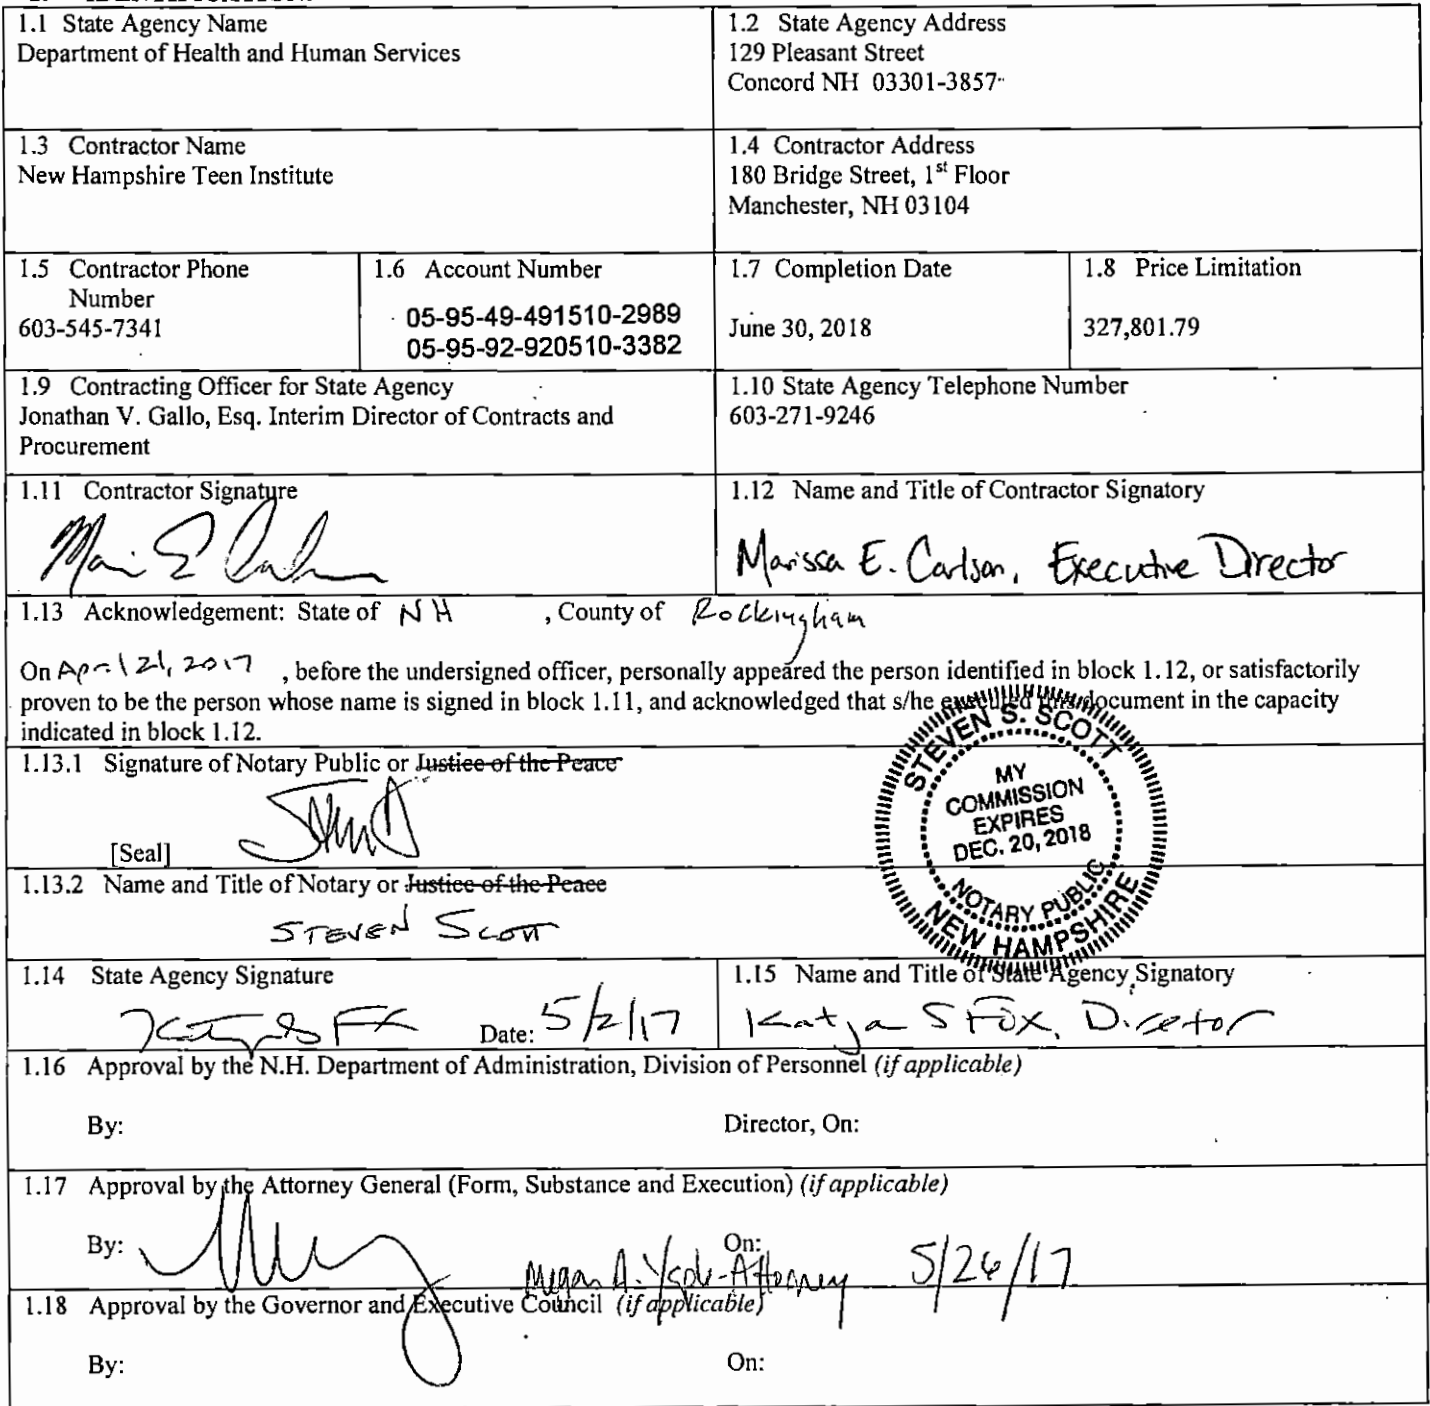 1.1 State Agency Name
Department of Health and Human Services
1.2 State Agency Address
129 Pleasant Street
Concord NH 03301-3857
1.3 Contractor Name
New Hampshire Teen Institute
1.4 Contractor Address
180 Bridge Street, 1st Floor
Manchester, NH 03104
1.5 Contractor Phone
Number
603-545-7341
1.6 Account Number
05-95-49-491510-2989
05-95-92-920510-3382
1.7 Completion Date
June 30, 2018
1.8 Price Limitation
327,801.79
1.9 Contracting Officer for State Agency
Jonathan V. Gallo, Esq. Interim Director of Contracts and
Procurement
1.10 State Agency Telephone Number
603-271-9246
1.11 Contractor Signature
1.12 Name and Title of Contractor Signatory
Marissa E. Carlson, Executive Director
1.13 Acknowledgement: State of NH , County of Rockingham
On April 21, 2017 , before the undersigned officer, personally appeared the person identified in block 1.12, or satisfactorily
proven to be the person whose name is signed in block 1.11, and acknowledged that s/he executed this document in the capacity
indicated in block 1.12.
1.13.1 Signature of Notary Public or Justice of the Peace
[Seal]
STEVEN S. SCOTT
MY
COMMISSION
EXPIRES
DEC. 20, 2018
NOTARY PUBLIC
NEW HAMPSHIRE
1.13.2 Name and Title of Notary or Justice of the Peace
STEVEN SCOTT
1.14 State Agency Signature
Date: 5/2/17
1.15 Name and Title of State Agency Signatory
Katja S Fox, Director
1.16 Approval by the N.H. Department of Administration, Division of Personnel (if applicable)
By:
Director, On:
1.17 Approval by the Attorney General (Form, Substance and Execution) (if applicable)
By:
On:
Megan A. - Attorney 5/26/17
1.18 Approval by the Governor and Executive Council (if applicable)
By:
On: